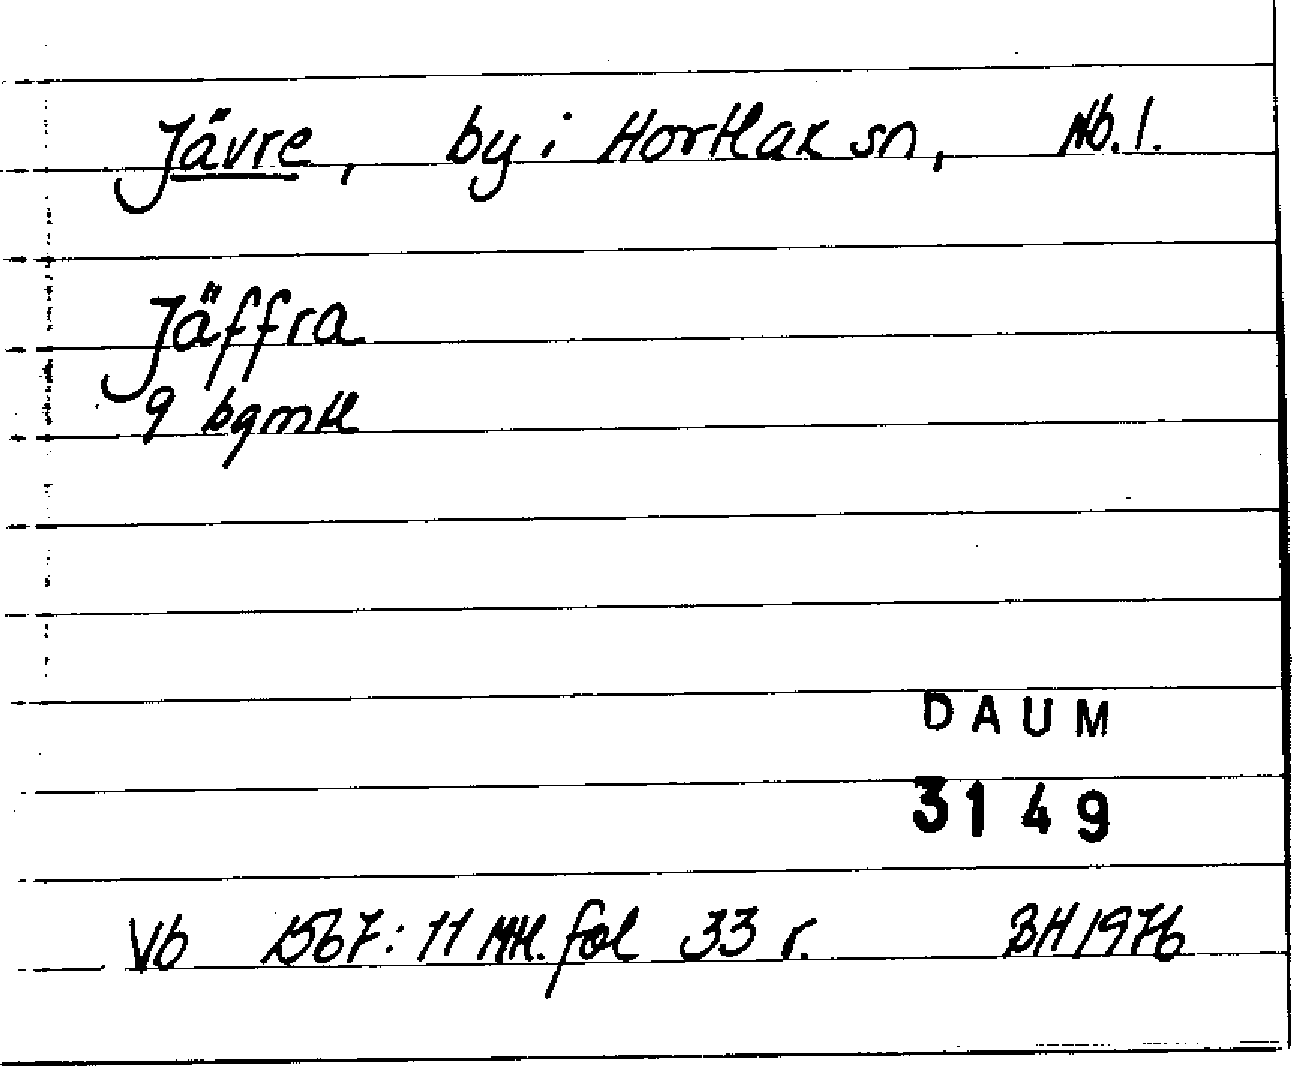 Jävre, by i Hortlax sn, Nb. l.
Jäffra
9 bgmtl
DAUM
3149
Vb 1567: 11 Mtl. fol 33 r. BH 1976